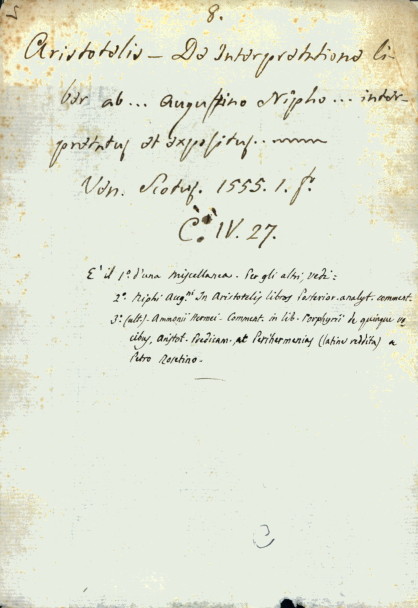 8.
Aristotelis — De Interpretatione li-
ber ab... Augustino Nipho... inter-
pretatus et expositus.
Ven. Scotus. 1555. 1. fº.
C. IV. 27.
E' il 1º. d'una miscellanea. Per gli altri, vedi:
2º. Niphi Aug.ni In Aristotelis libros Posterior. analyt. comment.
3º. (ult.). Ammonii Hermei. Comment. in lib. Porphyrii de quinque vo-
cibus, Aristot. Praedicam. et Perihermenias (latine reddita) a
Petro Rosetino.